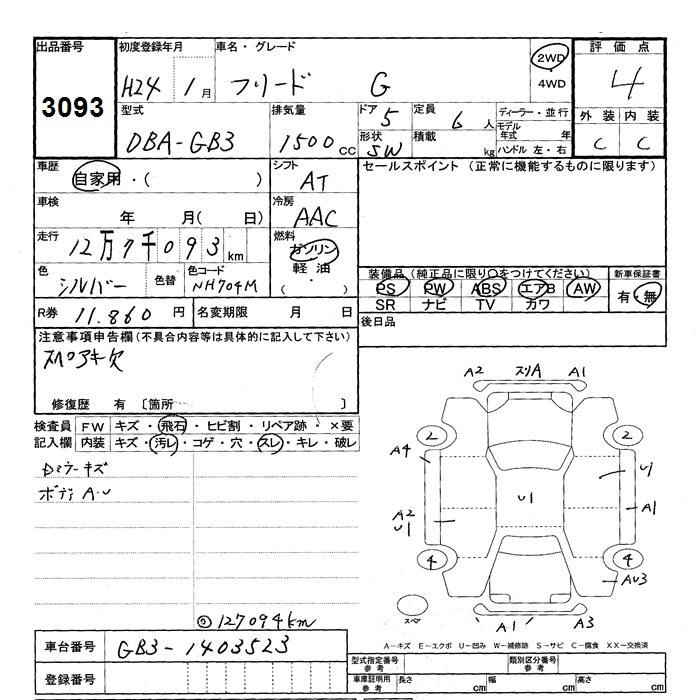 出品番号 初度登録年月 車名・グレード 評価点
3093 H24 1月 フリード G 2WD 4WD 4
型式 排気量 ドア 5 定員 6人 ディーラー・並行 外装 内装
DBA-GB3 1500cc 形状 SW 積載 kg モデル年式 年 ハンドル 左・右 C C
車歴 自家用・( ) シフト AT セールスポイント (正常に機能するものに限ります)
車検 年 月( 日) 冷房 AAC
走行 12万7千093km 燃料 ガソリン 軽油 ( ・ )
色 シルバー 色替 色コード NH704M
装備品(純正品に限り○をつけてください) 新車保証書
PS PW ABS エアB AW 有・無
SR ナビ TV カワ
R券 11.860円 名変期限 月 日 後日品
注意事項申告欄(不具合内容等は具体的に記入して下さい)
スペアキ欠
修復歴 有 〔箇所 〕
検査員 FW キズ・飛石・ヒビ割・リペア跡・×要
記入欄 内装 キズ・汚レ・コゲ・穴・スレ・キレ・破レ
Dミラーキズ
ボディ A.U
A2 スリA A1
2 2
A4 U1
U1
A2 U1 A1
4 4
AU3
スペア A1 A3
127094km
車台番号 GB3-1403523
登録番号
A-キズ E-エクボ U-凹み W-補修跡 S-サビ C-腐食 XX-交換済
型式指定番号 参考 類別区分番号 参考
車庫証明用 参考 長さ cm 幅 cm 高さ cm